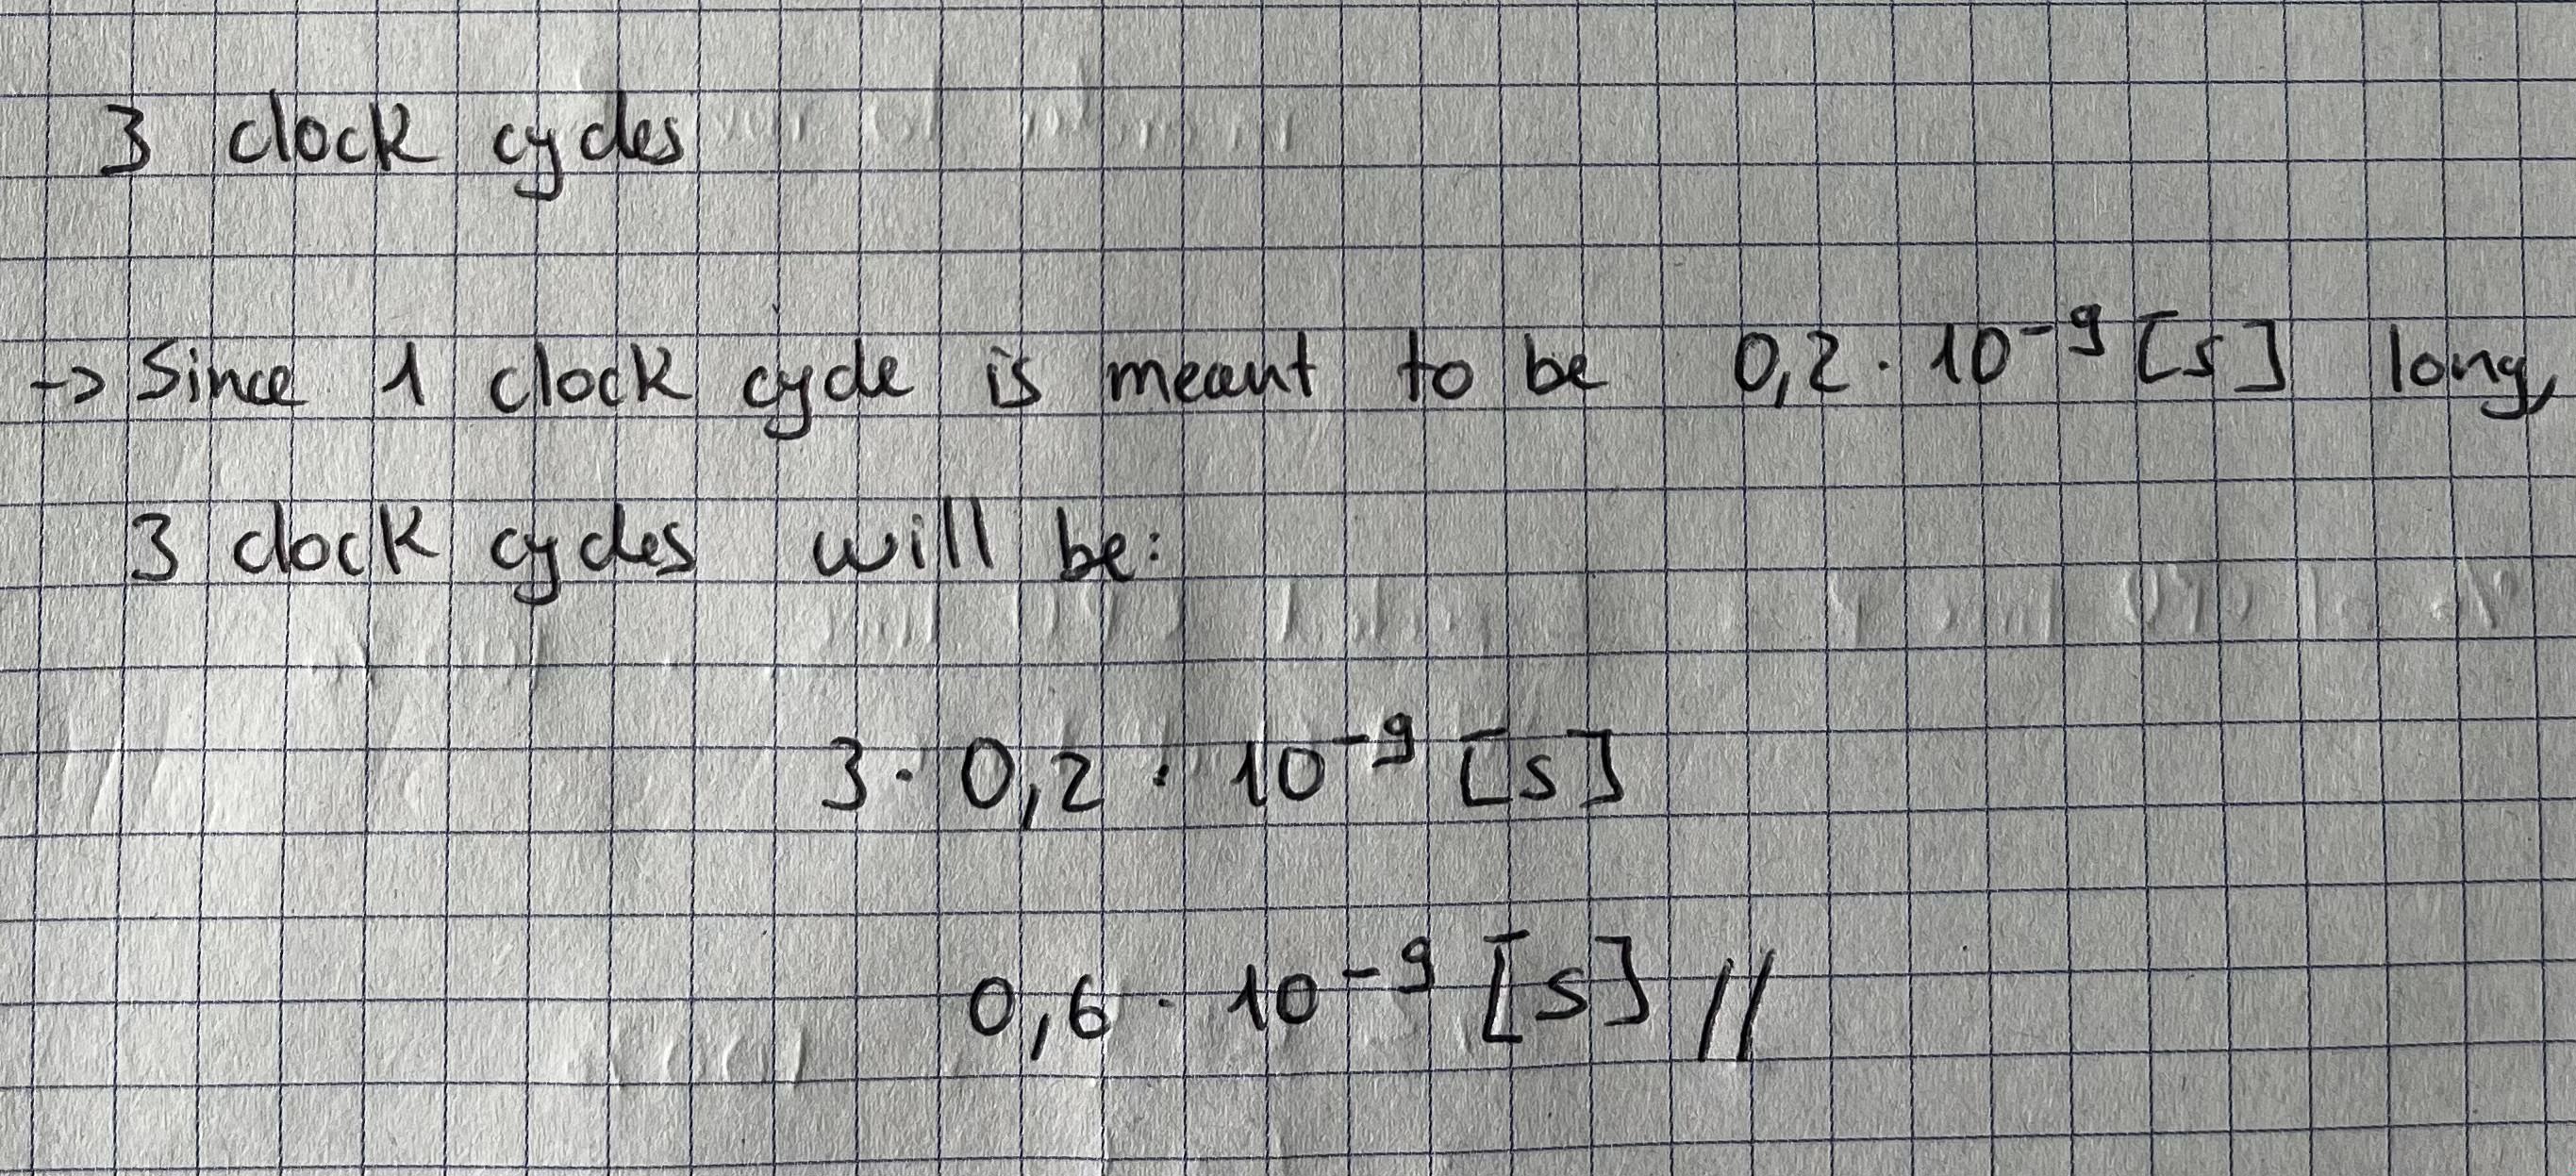 3 clock cycles
-> Since 1 clock cycle is meant to be 0,2 · 10⁻⁹ [s] long,
3 clock cycles will be:
3 · 0,2 · 10⁻⁹ [s]
0,6 · 10⁻⁹ [s] //